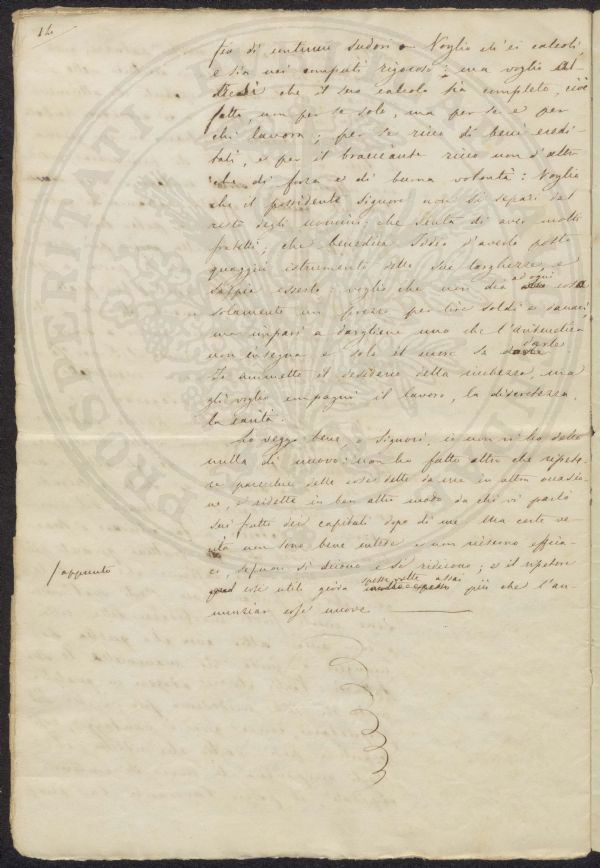 12
fia di continui sudori — Voglio ch'ei calcoli,
e sia nei computi rigoroso: ma voglio
che il suo calcolo sia completo, cioè
fatto, non per se solo, ma per se e per
chi lavora; per se ricco di beni eredi
tati, e per il bracciante ricco non d'altro
che di forza e di buona volontà: Voglio
che il possidente Signore non si separi dal
resto degli uomini; che senta di aver molti
fratelli; che benedica Iddio d'averlo posto
quaggiù istrumento delle sue larghezze, e
sappia esserlo: voglio che non dia ad ogni cosa
solamente un prezzo per lire soldi e danari,
ma impari a dargliene uno che l'aritmetica
non insegna e solo il cuore sa darle
Io ammetto il desiderio della ricchezza, ma
gli voglio compagni il lavoro, la discretezza,
la carità.
Lo veggo bene, o Signori, io non vi ho detto
nulla di nuovo: non ho fatto altro che ripete-
re parecchie delle cose dette da me in altre occasio-
ni, e ridette in ben altro modo da chi vi parlò
sui frutti dei capitali dopo di me. Ma certe ve-
rità non sono bene intese e non riescono effica-
ci, se non si dicono e si ridicono; e il ripetere
/ appunto
cose utili giova spesse volte assai più che l'an-
nunziar cose nuove
PRUS